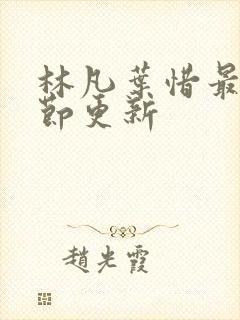 林凡葉惜最
節更新
趙光霞